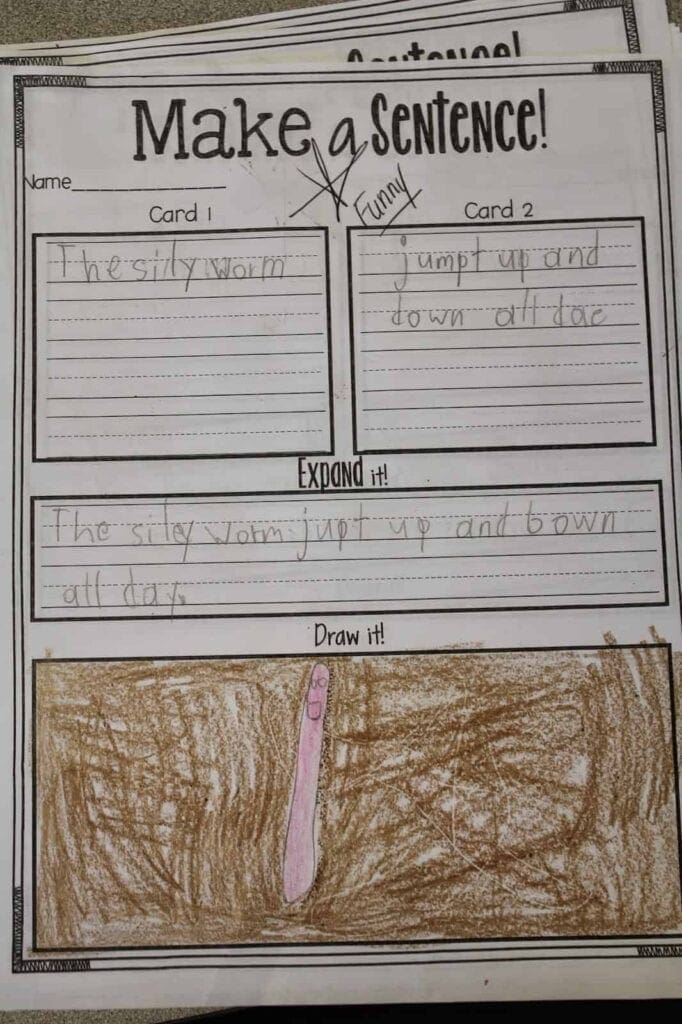 Sentence!
Make a Sentence!
Name
Funny
Card 1
Card 2
The silly worm
jumpt up and
down all dae
Expand it!
The siley worm jupt up and bown
all day.
Draw it!